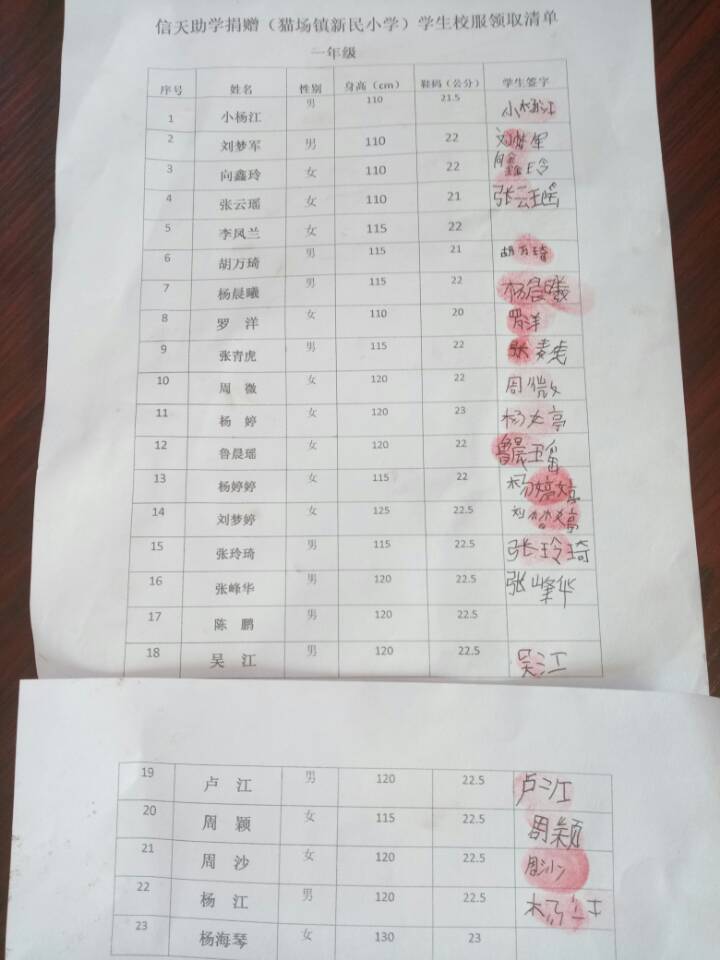 信天助学捐赠（猫场镇新民小学）学生校服领取清单
一年级
序号 姓名 性别 身高（cm） 鞋码（公分） 学生签字
1 小杨江 男 110 21.5 小杨江
2 刘梦军 男 110 22 刘梦军
3 向鑫玲 女 110 22 向鑫玲
4 张云瑶 女 110 21 张云瑶
5 李凤兰 女 115 22
6 胡万琦 男 115 21 胡万琦
7 杨晨曦 男 115 22 杨晨曦
8 罗 洋 女 110 20 罗洋
9 张青虎 男 115 22 张青虎
10 周 微 女 120 22 周微
11 杨 婷 女 120 23 杨婷
12 鲁晨瑶 女 120 22 鲁晨瑶
13 杨婷婷 女 115 22 杨婷婷
14 刘梦婷 女 125 22.5 刘梦婷
15 张玲琦 男 115 22.5 张玲琦
16 张峰华 男 120 22.5 张峰华
17 陈 鹏 男 120 22.5
18 吴 江 男 120 22.5 吴江
19 卢 江 男 120 22.5 卢江
20 周 颖 女 115 22.5 周颖
21 周 沙 女 120 22.5 周沙
22 杨 江 男 120 22.5 杨江
23 杨海琴 女 130 23